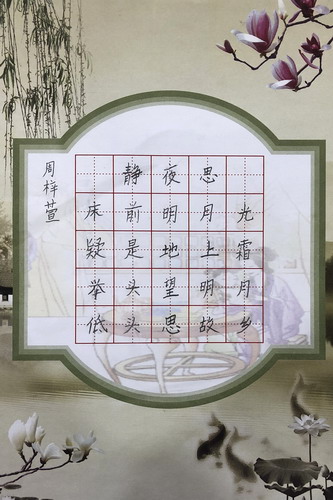 静夜思
床前明月光
疑是地上霜
举头望明月
低头思故乡
周梓萱